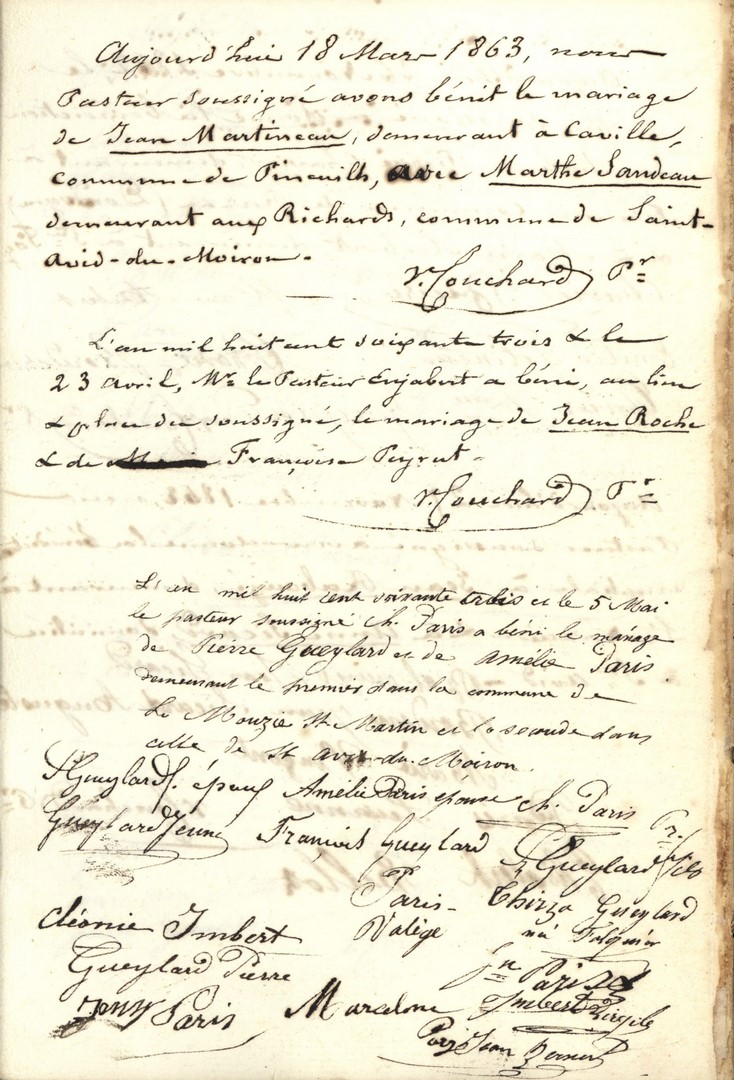 Aujourd'hui 18 Mars 1863, nous
Pasteur soussigné avons bénit le mariage
de Jean Martineau, demeurant à Caville,
commune de Pineuilh, avec Marthe Jandeau
demeurant aux Richards, commune de Saint-
Avid-du-Moiron.
V. Couchard Pr
L'an mil huit cent soixante trois & le
23 avril, Mr le Pasteur Enjalbert a béni, au lieu
& place du soussigné, le mariage de Jean Roche
& de Françoise Peyrut.
V. Couchard Pr
L'an mil huit cent soixante trois et le 5 Mai
le pasteur soussigné Ch. Paris a béni le mariage
de Pierre Gueylard et de Amélie Paris
demeurant le premier dans la commune de
Le Mouzie St Martin et la seconde dans
celle de St Avit-du-Moiron.
P. Gueylard f. époux Amélie Paris épouse Ch. Paris Pr.
Gueylard Jeune François Gueylard Gueylard fils
Paris- Thirza Gueylard
Cléonie Imbert Valège née
Gueylard Pierre Jn Paris
Jenny Paris Marcelone Imbert Virgile
Jean